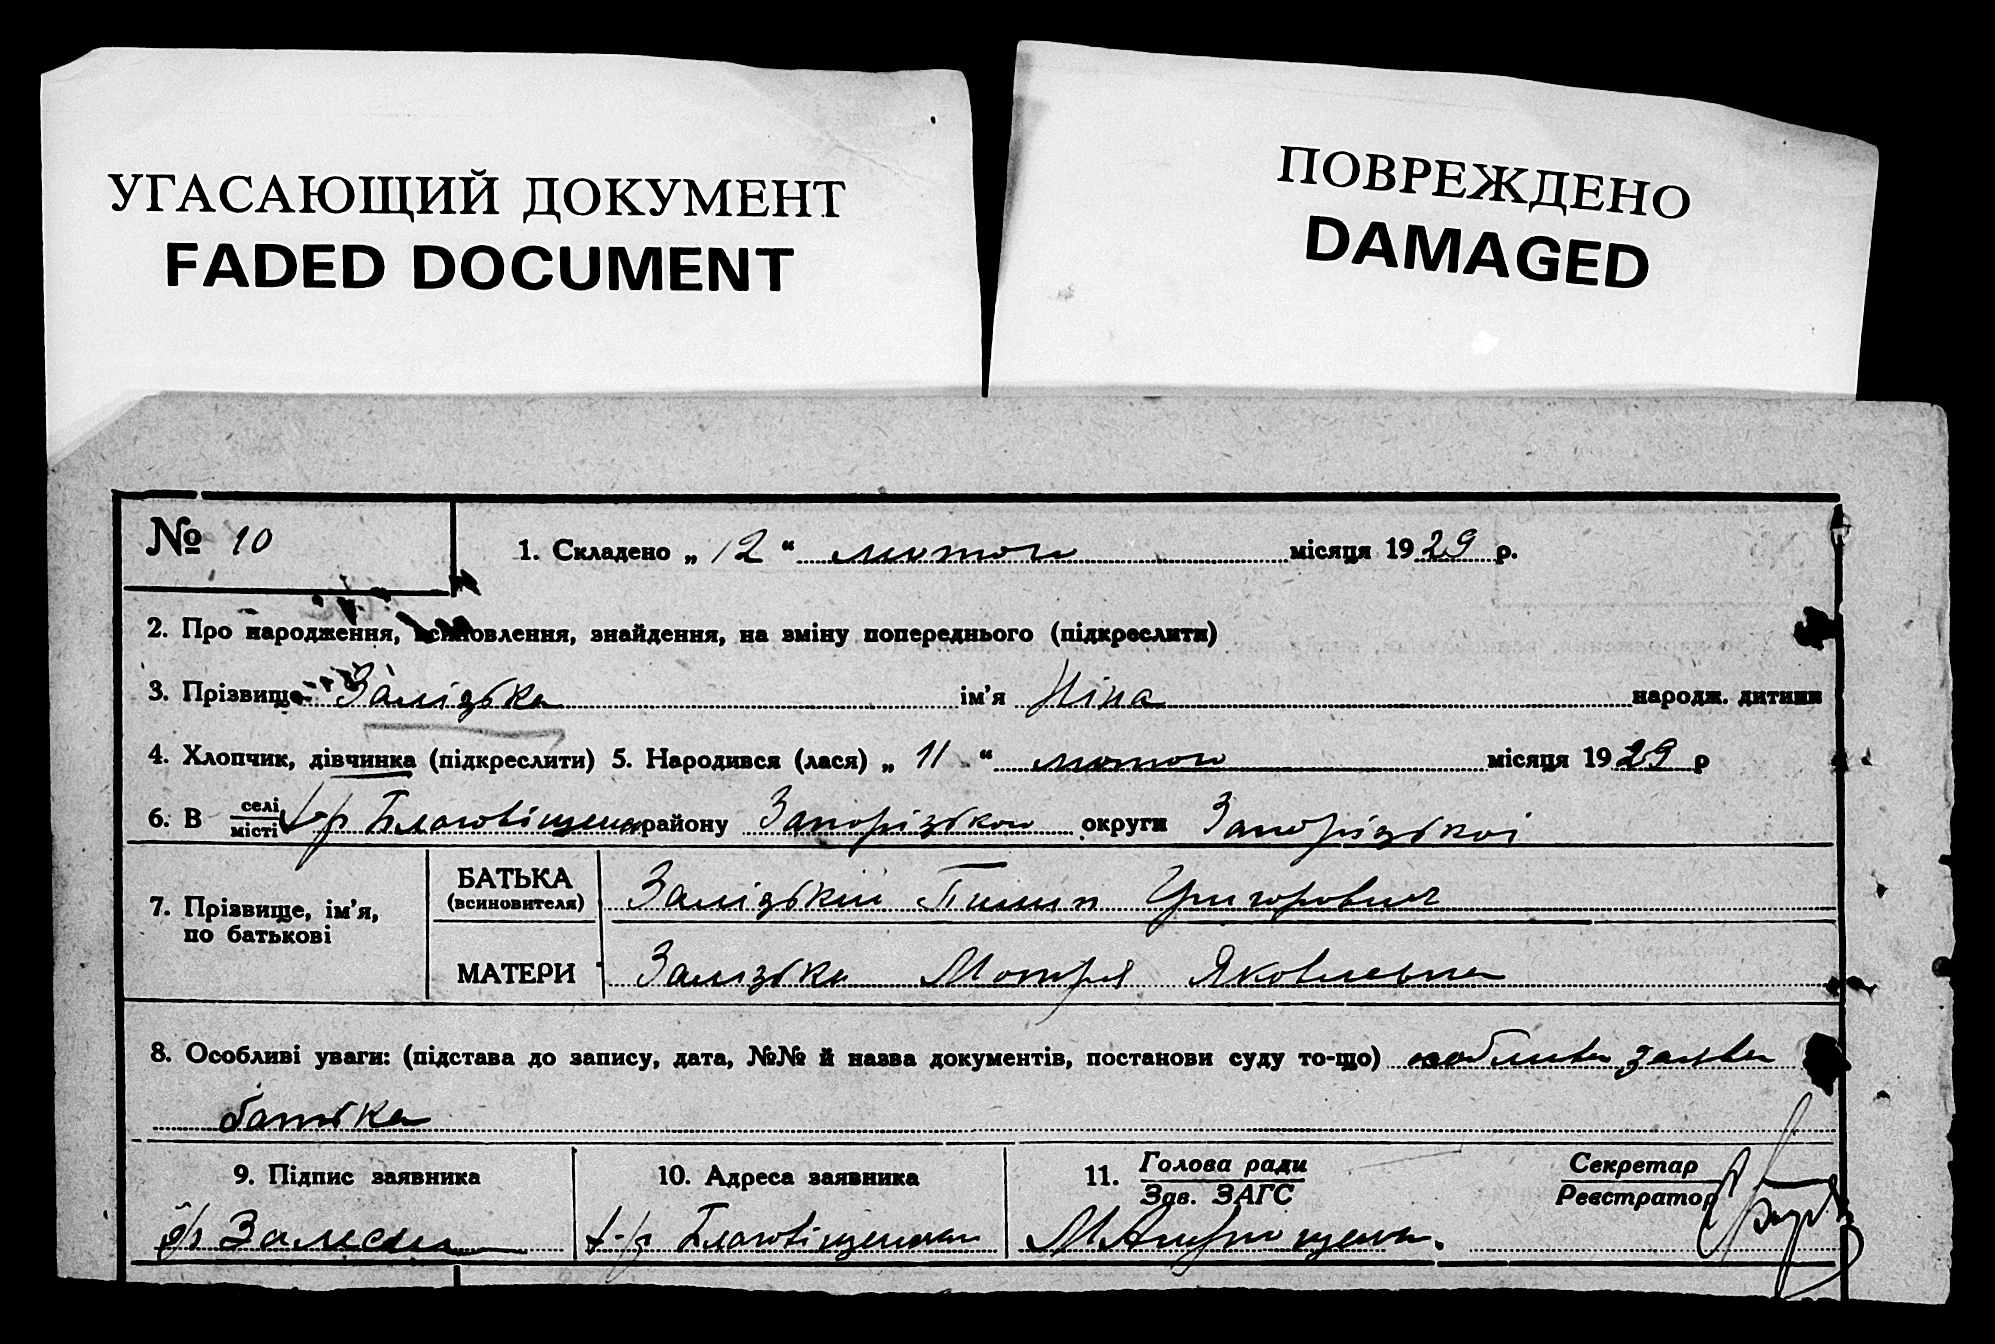 УГАСАЮЩИЙ ДОКУМЕНТ
FADED DOCUMENT
ПОВРЕЖДЕНО
DAMAGED
№ 10
1. Складено „ 12 “ лютого місяця 1929 р.
2. Про народження, всиновлення, знайдення, на зміну попереднього (підкреслити)
3. Прізвище Залізька ім’я Ніна народж. дитини
4. Хлопчик, дівчинка (підкреслити) 5. Народився (лася) „ 11 “ лютого місяця 1929 р
6. В селі/місті х-р Благовіщенс району Запорізького округи Запорізької
7. Прізвище, ім’я, по батькові
БАТЬКА (всиновителя) Залізький Пилип Григорович
МАТЕРИ Залізька Мотря Яковлевна
8. Особливі уваги: (підстава до запису, дата, №№ й назва документів, постанови суду то-що) особлива заява
батька
9. Підпис заявника
10. Адреса заявника
11. Голова ради
Зав. ЗАГС
Секретар
Реєстратор
х-р